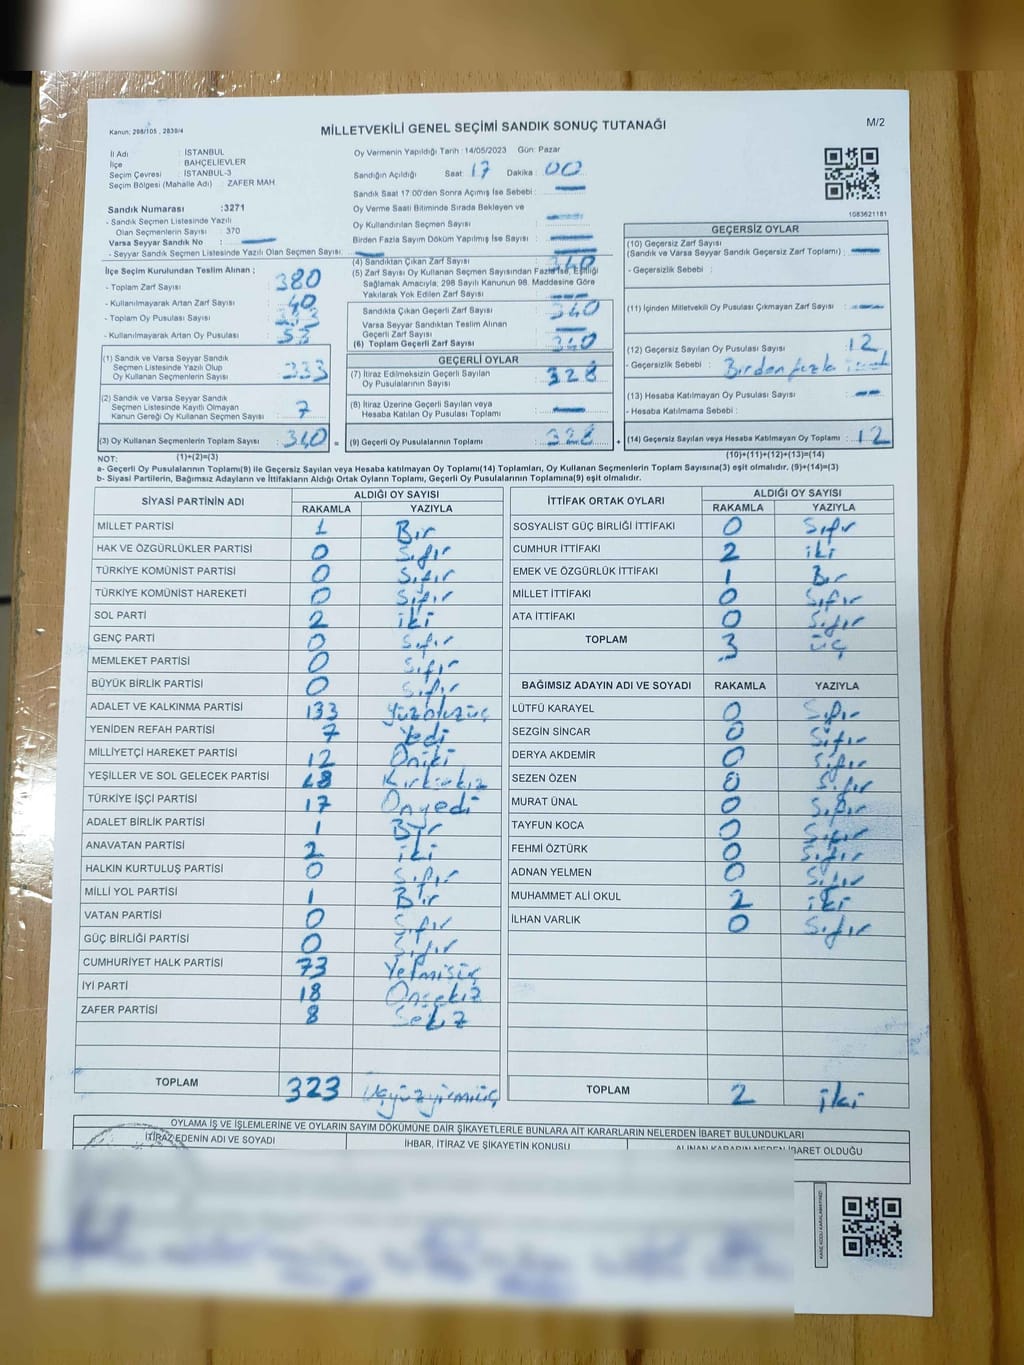 Kanun, 298/105 , 2839/4
MİLLETVEKİLİ GENEL SEÇİMİ SANDIK SONUÇ TUTANAĞI
M/2
İl Adı : İSTANBUL
İlçe : BAHÇELİEVLER
Seçim Çevresi : İSTANBUL-3
Seçim Bölgesi (Mahalle Adı) : ZAFER MAH
Sandık Numarası :3271
- Sandık Seçmen Listesinde Yazılı
Olan Seçmenlerin Sayısı : 370
Varsa Seyyar Sandık No :
- Seyyar Sandık Seçmen Listesinde Yazılı Olan Seçmen Sayısı:
İlçe Seçim Kurulundan Teslim Alınan ;
- Toplam Zarf Sayısı : 380
- Kullanılmayarak Artan Zarf Sayısı : 40
- Toplam Oy Pusulası Sayısı :
- Kullanılmayarak Artan Oy Pusulası : 53
(1) Sandık ve Varsa Seyyar Sandık
Seçmen Listesinde Yazılı Olup
Oy Kullanan Seçmenlerin Sayısı : 333
(2) Sandık ve Varsa Seyyar Sandık
Seçmen Listesinde Kayıtlı Olmayan
Kanun Gereği Oy Kullanan Seçmen Sayısı : 7
(3) Oy Kullanan Seçmenlerin Toplam Sayısı : 340 =
Oy Vermenin Yapıldığı Tarih :14/05/2023 Gün: Pazar
Sandığın Açıldığı Saat : 17 Dakika : 00
Sandık Saat 17:00'den Sonra Açımış İse Sebebi :
Oy Verme Saati Bitiminde Sırada Bekleyen ve
Oy Kullandırılan Seçmen Sayısı :
Birden Fazla Sayım Döküm Yapılmış İse Sayısı :
(4) Sandıktan Çıkan Zarf Sayısı : 340
(5) Zarf Sayısı Oy Kullanan Seçmen Sayısından Fazla İse, Eşitliği
Sağlamak Amacıyla, 298 Sayılı Kanunun 98. Maddesine Göre
Yakılarak Yok Edilen Zarf Sayısı :
Sandıkta Çıkan Geçerli Zarf Sayısı : 340
Varsa Seyyar Sandıktan Teslim Alınan
Geçerli Zarf Sayısı :
(6) Toplam Geçerli Zarf Sayısı : 340
GEÇERLİ OYLAR
(7) İtiraz Edilmeksizin Geçerli Sayılan
Oy Pusulalarının Sayısı : 328
(8) İtiraz Üzerine Geçerli Sayılan veya
Hesaba Katılan Oy Pusulası Toplamı :
(9) Geçerli Oy Pusulalarının Toplamı : 328 +
1083621181
GEÇERSİZ OYLAR
(10) Geçersiz Zarf Sayısı
(Sandık ve Varsa Seyyar Sandık Geçersiz Zarf Toplamı) :
- Geçersizlik Sebebi :
(11) İçinden Milletvekili Oy Pusulası Çıkmayan Zarf Sayısı :
(12) Geçersiz Sayılan Oy Pusulası Sayısı : 12
- Geçersizlik Sebebi : Birden fazla
(13) Hesaba Katılmayan Oy Pusulası Sayısı :
- Hesaba Katılmama Sebebi :
(14) Geçersiz Sayılan veya Hesaba Katılmayan Oy Toplamı : 12
NOT: (1)+(2)=(3) (10)+(11)+(12)+(13)=(14)
a- Geçerli Oy Pusulalarının Toplamı(9) ile Geçersiz Sayılan veya Hesaba katılmayan Oy Toplamı(14) Toplamları, Oy Kullanan Seçmenlerin Toplam Sayısına(3) eşit olmalıdır. (9)+(14)=(3)
b- Siyasi Partilerin, Bağımsız Adayların ve İttifakların Aldığı Ortak Oyların Toplamı, Geçerli Oy Pusulalarının Toplamına(9) eşit olmalıdır.
SİYASİ PARTİNİN ADI ALDIĞI OY SAYISI
RAKAMLA YAZIYLA
MİLLET PARTİSİ 1 Bir
HAK VE ÖZGÜRLÜKLER PARTİSİ 0 Sıfır
TÜRKİYE KOMÜNİST PARTİSİ 0 Sıfır
TÜRKİYE KOMÜNİST HAREKETİ 0 Sıfır
SOL PARTİ 2 iki
GENÇ PARTİ 0 Sıfır
MEMLEKET PARTİSİ 0 Sıfır
BÜYÜK BİRLİK PARTİSİ 0 Sıfır
ADALET VE KALKINMA PARTİSİ 133 Yüzotuzüç
YENİDEN REFAH PARTİSİ 7 Yedi
MİLLİYETÇİ HAREKET PARTİSİ 12 Oniki
YEŞİLLER VE SOL GELECEK PARTİSİ 48 Kırksekiz
TÜRKİYE İŞÇİ PARTİSİ 17 Onyedi
ADALET BİRLİK PARTİSİ 1 Bir
ANAVATAN PARTİSİ 2 iki
HALKIN KURTULUŞ PARTİSİ 0 Sıfır
MİLLİ YOL PARTİSİ 1 Bir
VATAN PARTİSİ 0 Sıfır
GÜÇ BİRLİĞİ PARTİSİ 0 Sıfır
CUMHURİYET HALK PARTİSİ 73 Yetmişüç
İYİ PARTİ 18 Onsekiz
ZAFER PARTİSİ 8 Sekiz
TOPLAM 323 Üçyüzyirmiüç
İTTİFAK ORTAK OYLARI ALDIĞI OY SAYISI
RAKAMLA YAZIYLA
SOSYALİST GÜÇ BİRLİĞİ İTTİFAKI 0 Sıfır
CUMHUR İTTİFAKI 2 iki
EMEK VE ÖZGÜRLÜK İTTİFAKI 1 Bir
MİLLET İTTİFAKI 0 Sıfır
ATA İTTİFAKI 0 Sıfır
TOPLAM 3 üç
BAĞIMSIZ ADAYIN ADI VE SOYADI RAKAMLA YAZIYLA
LÜTFÜ KARAYEL 0 Sıfır
SEZGİN SİNCAR 0 Sıfır
DERYA AKDEMİR 0 Sıfır
SEZEN ÖZEN 0 Sıfır
MURAT ÜNAL 0 Sıfır
TAYFUN KOCA 0 Sıfır
FEHMİ ÖZTÜRK 0 Sıfır
ADNAN YELMEN 0 Sıfır
MUHAMMET ALİ OKUL 2 iki
İLHAN VARLIK 0 Sıfır
TOPLAM 2 iki
OYLAMA İŞ VE İŞLEMLERİNE VE OYLARIN SAYIM DÖKÜMÜNE DAİR ŞİKAYETLERLE BUNLARA AİT KARARLARIN NELERDEN İBARET BULUNDUKLARI
İTİRAZ EDENİN ADI VE SOYADI İHBAR, İTİRAZ VE ŞİKAYETİN KONUSU ALINAN KARARIN NEDEN İBARET OLDUĞU
KARE KODU KARALAMAYINIZ!